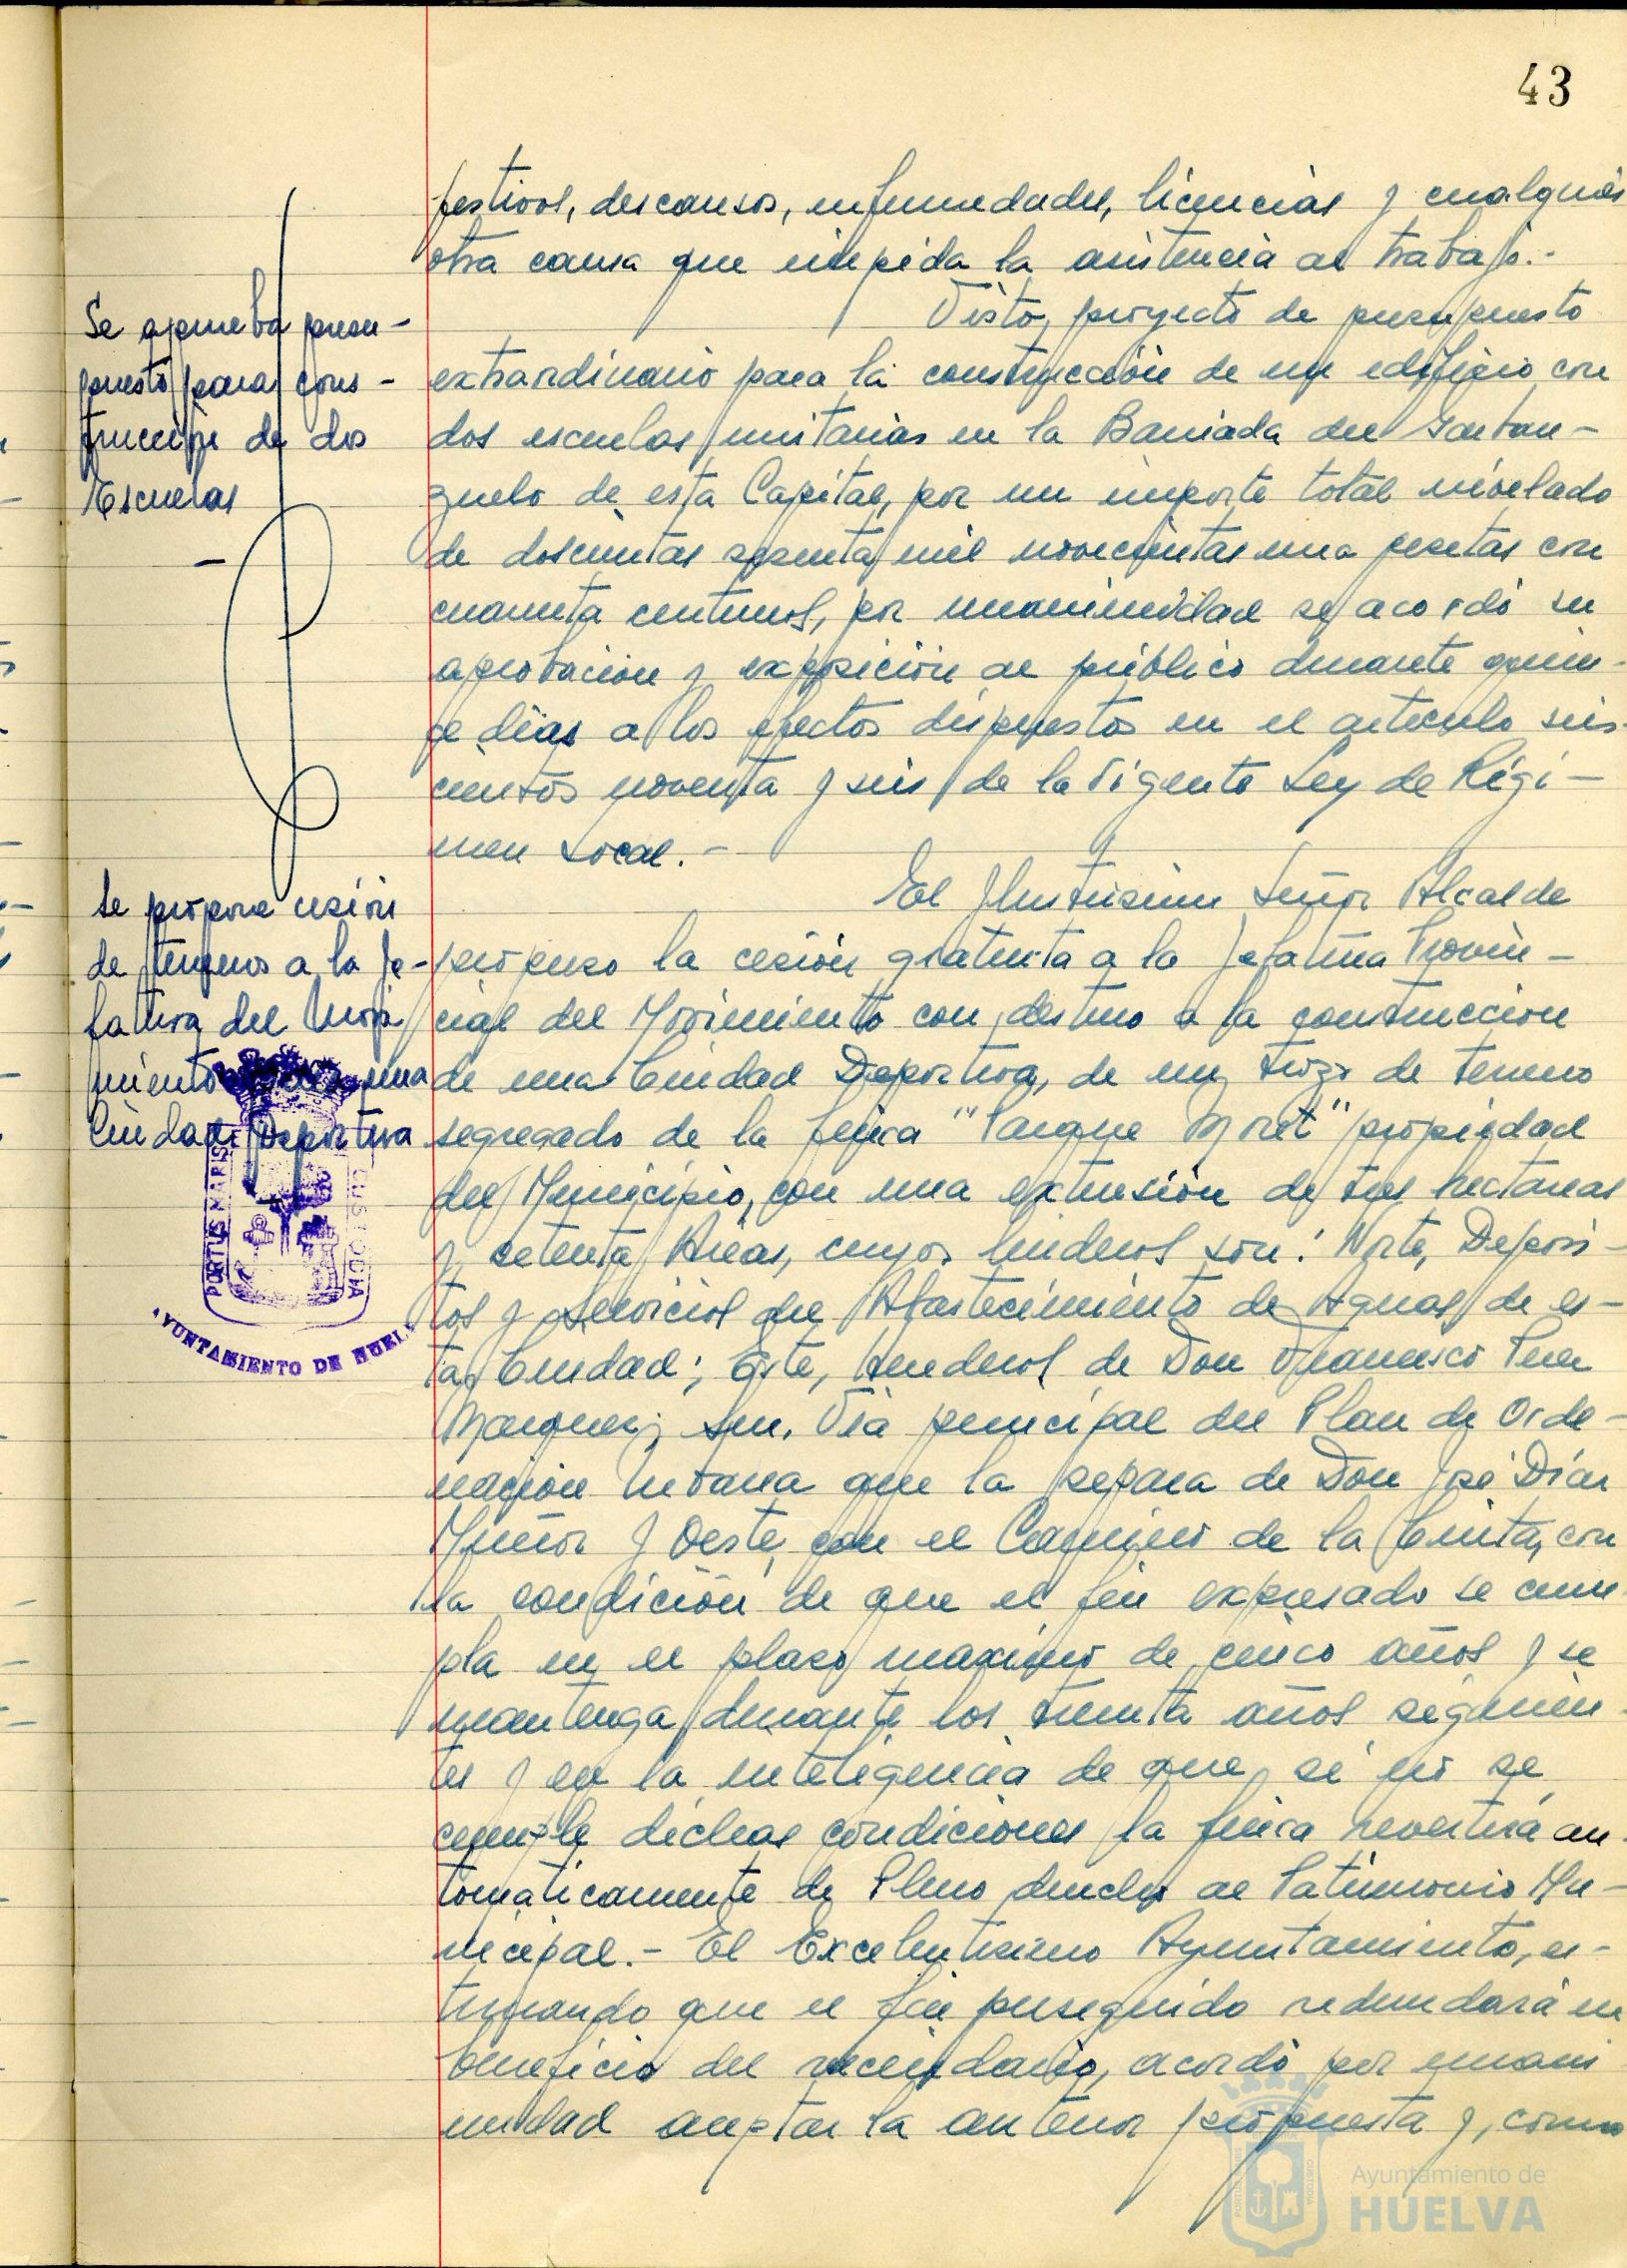 43
festivos, descansos, enfermedades, licencias y cualquier
otra causa que impida la asistencia al trabajo.-
Se aprueba presu-
puesto para cons-
trucción de dos
Escuelas
Visto, proyecto de presupuesto
extraordinario para la construcción de un edificio con
dos escuelas unitarias en la Barriada del Garban-
zuelo de esta Capital, por un importe total nivelado
de doscientas sesenta mil novecientas una pesetas con
cuarenta centimos, por unanimidad se acordó su
aprobación y exposición al público durante quin-
ce días a los efectos dispuestos en el artículo seis-
cientos noventa y seis de la Vigente Ley de Régi-
men Local.-
Se propone cesión
de terrenos a la Je-
fatura del Movi
miento una
Ciudad Deportiva
El Ilustrisimo Señor Alcalde
propuso la cesión gratuita a la Jefatura Provin-
cial del Movimiento con destino a la construcción
de una Ciudad Deportiva, de un trozo de terreno
segregado de la finca "Parque Moret" propiedad
del Municipio, con una extensión de tres hectareas
y setenta Areas, cuyos linderos son: Norte, Deposi-
tos y Servicios de Abastecimiento de Aguas de es-
ta Ciudad; Este, linderos de Don Francisco
Marquez; Sur, Vía principal del Plan de Orde-
nación Urbana que la separa de Don José Díaz
Muñoz y Oeste, con el Camino de la Cinta, con
la condición de que el fin expresado se cum
pla en el plazo maximo de cinco años y se
mantenga durante los treinta años siguien-
tes y en la inteligencia de que, si no se
cumple dichas condiciones la finca revertirá au-
tomáticamente de Pleno derecho al Patrimonio Mu-
nicipal.- El Excelentisimo Ayuntamiento, es-
timando que el fin perseguido redundará en
beneficio del vecindario, acordó por unani
midad aceptar la anterior propuesta y, como
PORTUS MARIS
CUSTODIA
AYUNTAMIENTO DE HUELVA
Ayuntamiento de
HUELVA